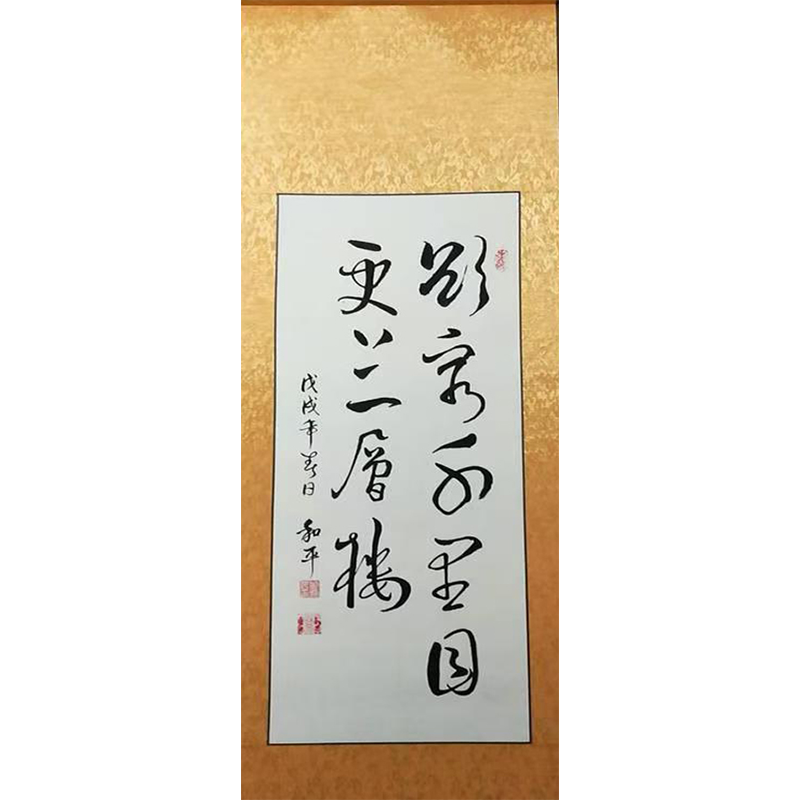 欲穷千里目
更上一层楼
戊戌年春日 和平